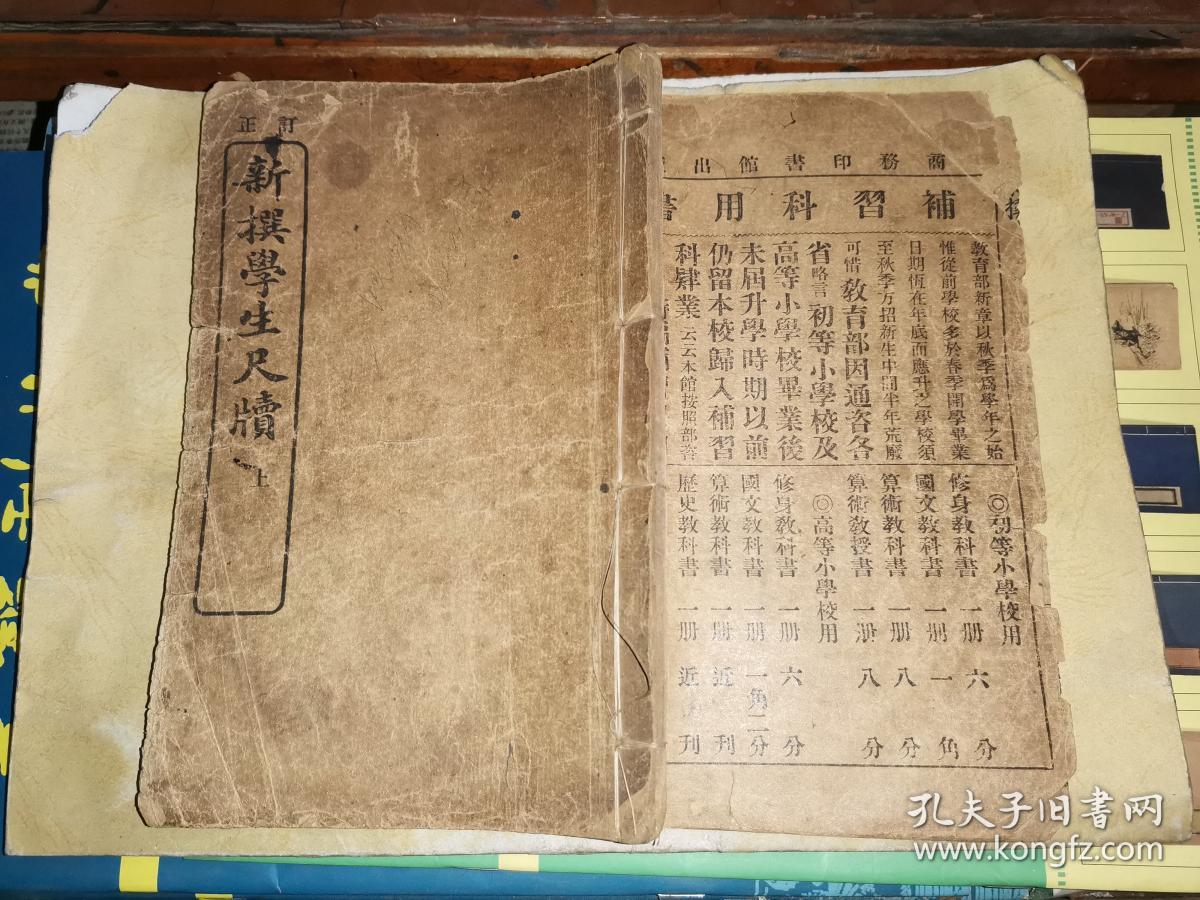 訂正
新撰學生尺牘 上
商務印書館出
補習科用書
教育部新章以秋季爲學年之始
惟從前學校多於春季開學畢業
日期恆在年底而應升之學校須
至秋季方招新生中間半年荒廢
可惜教育部因通咨各
省略言初等小學校及
高等小學校畢業後
未屆升學時期以前
仍留本校歸入補習
科肄業云云本館按照部章
◎初等小學校用
修身教科書 一册 六分
國文教科書 一册 一角
算術教科書 一册 八分
算術教授書 一册 八分
◎高等小學校用
修身教科書 一册 六分
國文教科書 一册 一角二分
算術教科書 一册 近刊
歷史教科書 一册 近刊
孔夫子旧书网
www.kongfz.com